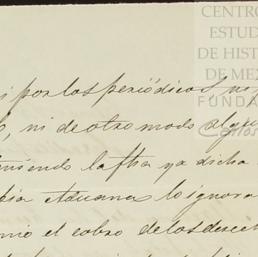 CENTRO
ESTUD
DE HIST
DE MÉX
FUND
Carlos
i por los periódicos, ni
ni de otro modo algu
teniendo la fha ya dicha
Aduana lo ignora
el cobro de los derech